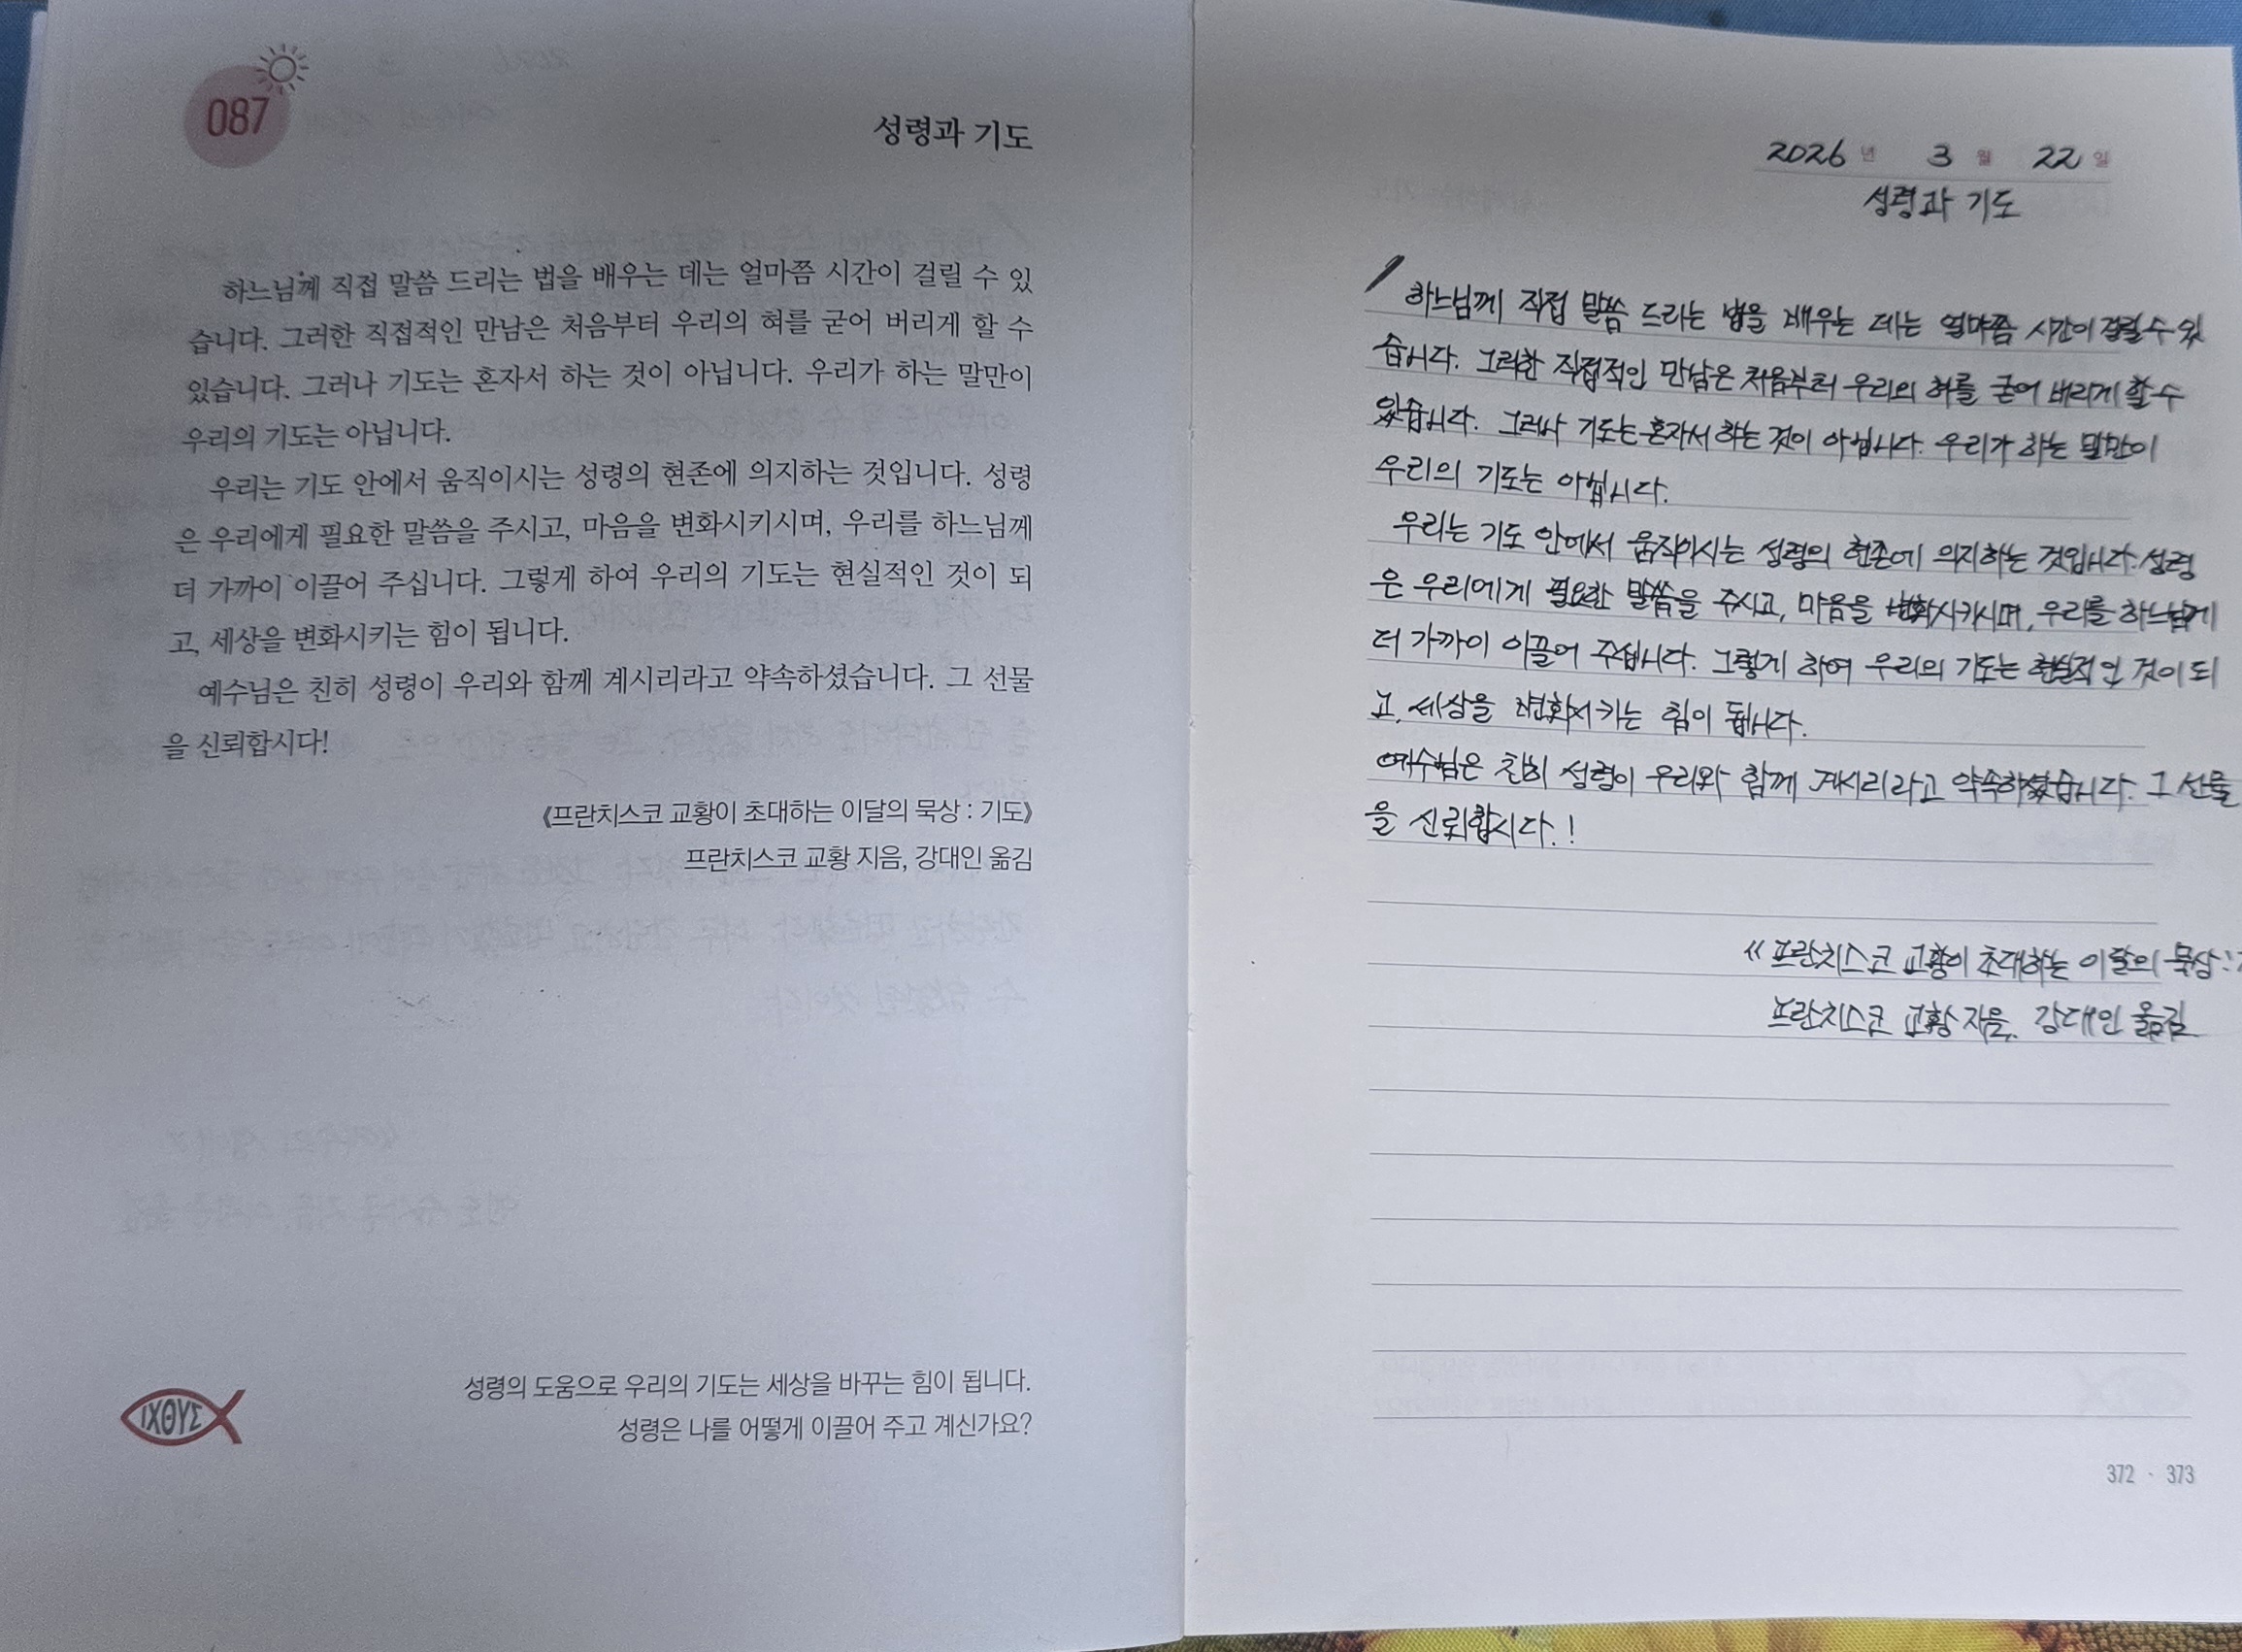 087
성령과 기도
하느님께 직접 말씀 드리는 법을 배우는 데는 얼마쯤 시간이 걸릴 수 있
습니다. 그러한 직접적인 만남은 처음부터 우리의 혀를 굳어 버리게 할 수
있습니다. 그러나 기도는 혼자서 하는 것이 아닙니다. 우리가 하는 말만이
우리의 기도는 아닙니다.
우리는 기도 안에서 움직이시는 성령의 현존에 의지하는 것입니다. 성령
은 우리에게 필요한 말씀을 주시고, 마음을 변화시키시며, 우리를 하느님께
더 가까이 이끌어 주십니다. 그렇게 하여 우리의 기도는 현실적인 것이 되
고, 세상을 변화시키는 힘이 됩니다.
예수님은 친히 성령이 우리와 함께 계시리라고 약속하셨습니다. 그 선물
을 신뢰합시다!
《프란치스코 교황이 초대하는 이달의 묵상 : 기도》
프란치스코 교황 지음, 강대인 옮김
성령의 도움으로 우리의 기도는 세상을 바꾸는 힘이 됩니다.
성령은 나를 어떻게 이끌어 주고 계신가요?
ΙΧΘΥΣ
2026 년 3 월 22 일
성령과 기도
하느님께 직접 말씀 드리는 법을 배우는 데는 얼마쯤 시간이 걸릴 수 있
습니다. 그러한 직접적인 만남은 처음부터 우리의 혀를 굳어 버리게 할 수
있습니다. 그러나 기도는 혼자서 하는 것이 아닙니다. 우리가 하는 말만이
우리의 기도는 아닙니다.
우리는 기도 안에서 움직이시는 성령의 현존에 의지하는 것입니다. 성령
은 우리에게 필요한 말씀을 주시고, 마음을 변화시키시며, 우리를 하느님께
더 가까이 이끌어 주십니다. 그렇게 하여 우리의 기도는 현실적인 것이 되
고, 세상을 변화시키는 힘이 됩니다.
예수님은 친히 성령이 우리와 함께 계시리라고 약속하셨습니다. 그 선물
을 신뢰합시다.!
《프란치스코 교황이 초대하는 이달의 묵상 :
프란치스코 교황 지음, 강대인 옮김
372 · 373